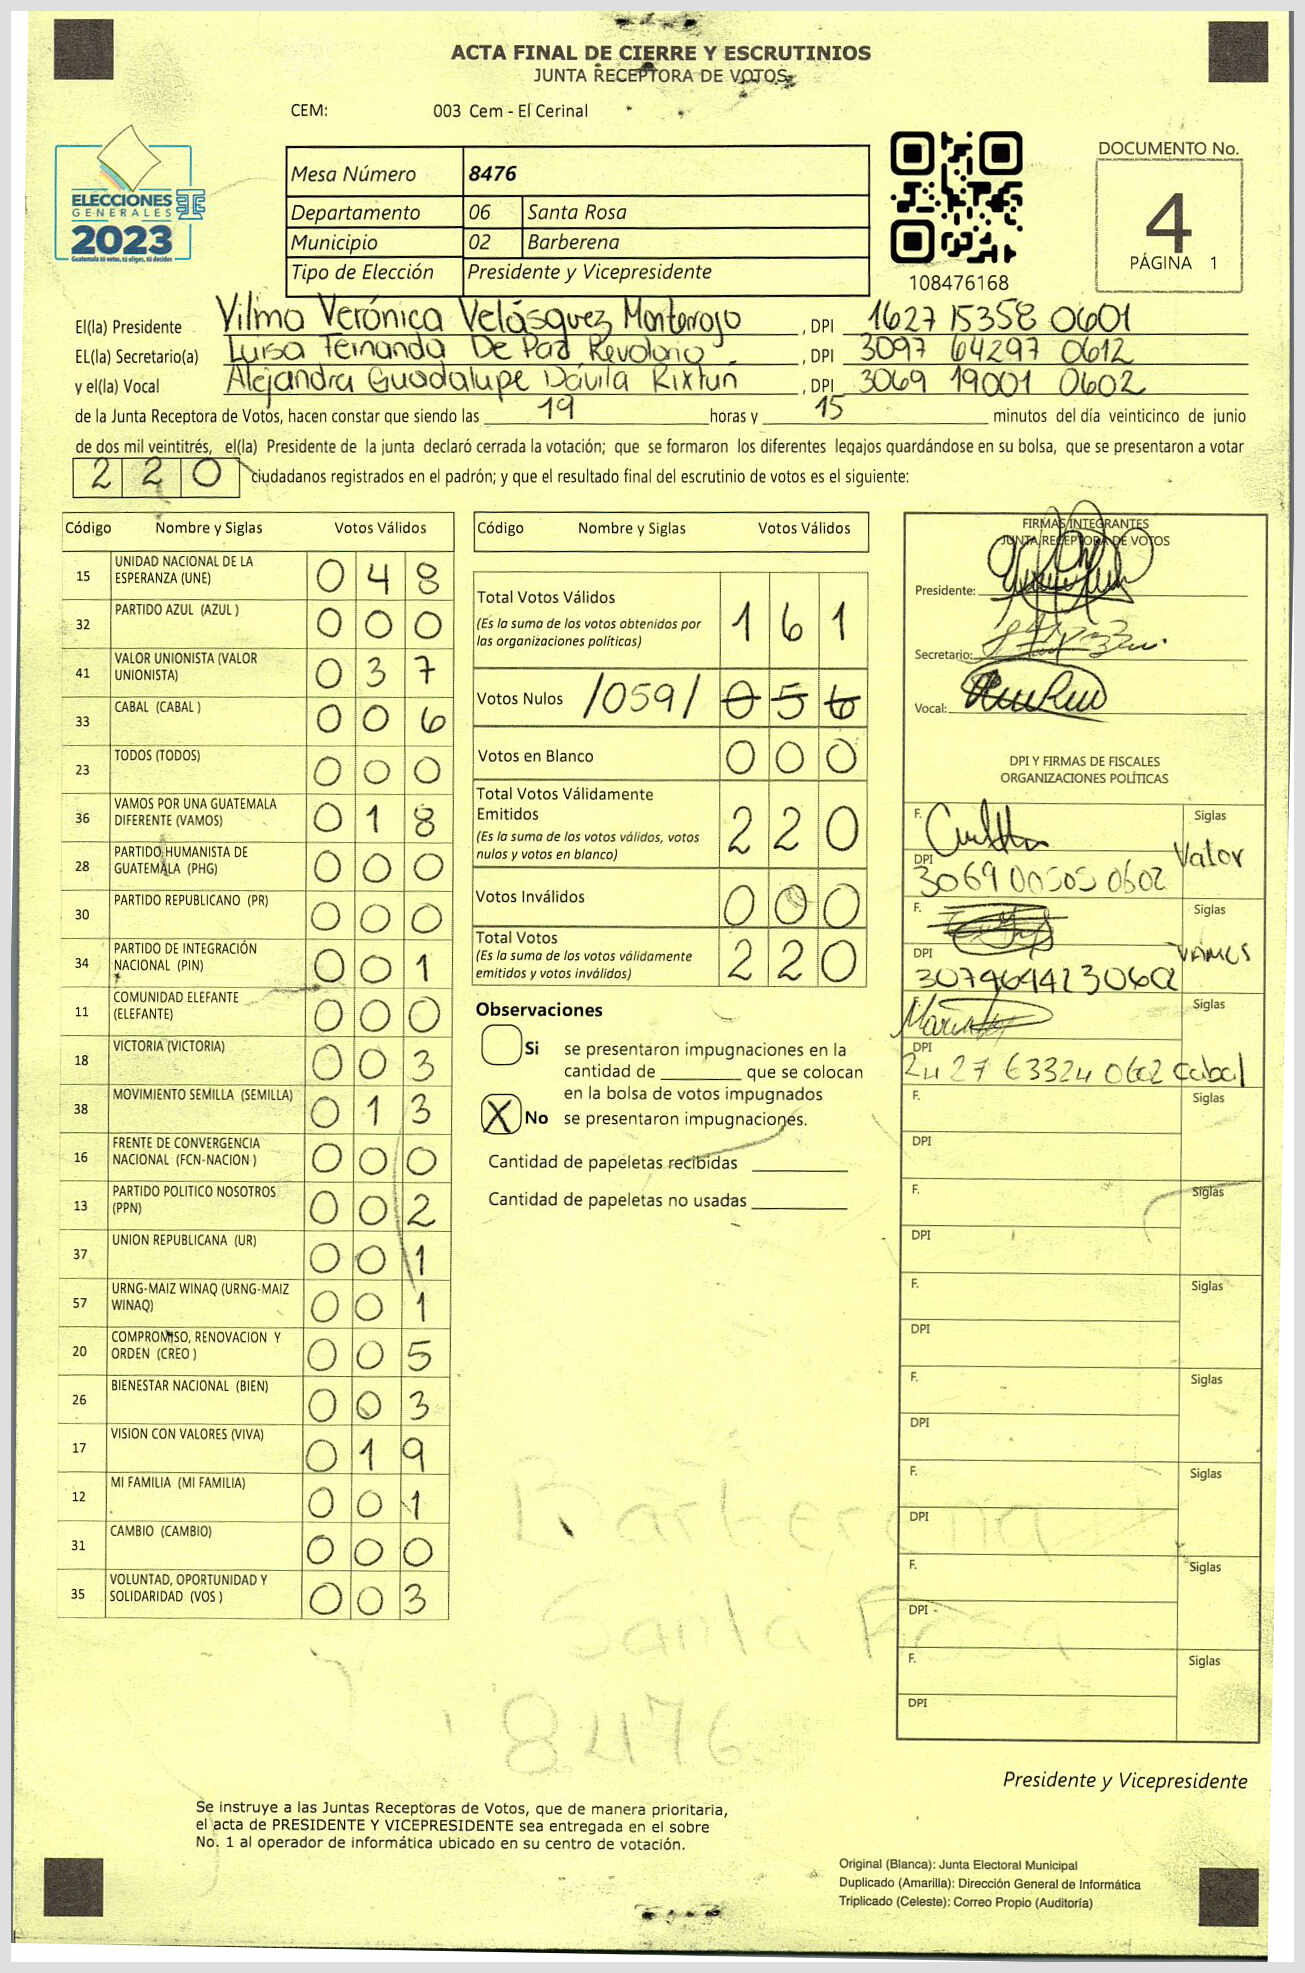 ACTA FINAL DE CIERRE Y ESCRUTINIOS
JUNTA RECEPTORA DE VOTOS
CEM: 003 Cem - El Cerinal
ELECCIONES
GENERALES
2023
Guatemala tú votas, tú eliges, tú decides
Mesa Número 8476
Departamento 06 Santa Rosa
Municipio 02 Barberena
Tipo de Elección Presidente y Vicepresidente
108476168
DOCUMENTO No.
4
PÁGINA 1
El(la) Presidente Vilma Verónica Velásquez Monterroso, DPI 1627 15358 0601
EL(la) Secretario(a) Luisa Fernanda De Paz Revolorio, DPI 3097 64297 0612
y el(la) Vocal Alejandra Guadalupe Dávila Rixtun, DPI 3069 19001 0602
de la Junta Receptora de Votos, hacen constar que siendo las 19 horas y 15 minutos del día veinticinco de junio
de dos mil veintitrés, el(la) Presidente de la junta declaró cerrada la votación; que se formaron los diferentes legajos guardándose en su bolsa, que se presentaron a votar
220 ciudadanos registrados en el padrón; y que el resultado final del escrutinio de votos es el siguiente:
Código Nombre y Siglas Votos Válidos
15 UNIDAD NACIONAL DE LA ESPERANZA (UNE) 048
32 PARTIDO AZUL (AZUL ) 000
41 VALOR UNIONISTA (VALOR UNIONISTA) 037
33 CABAL (CABAL ) 006
23 TODOS (TODOS) 000
36 VAMOS POR UNA GUATEMALA DIFERENTE (VAMOS) 018
28 PARTIDO HUMANISTA DE GUATEMALA (PHG) 000
30 PARTIDO REPUBLICANO (PR) 000
34 PARTIDO DE INTEGRACIÓN NACIONAL (PIN) 001
11 COMUNIDAD ELEFANTE (ELEFANTE) 000
18 VICTORIA (VICTORIA) 003
38 MOVIMIENTO SEMILLA (SEMILLA) 013
16 FRENTE DE CONVERGENCIA NACIONAL (FCN-NACION ) 000
13 PARTIDO POLITICO NOSOTROS (PPN) 002
37 UNION REPUBLICANA (UR) 001
57 URNG-MAIZ WINAQ (URNG-MAIZ WINAQ) 001
20 COMPROMISO, RENOVACION Y ORDEN (CREO ) 005
26 BIENESTAR NACIONAL (BIEN) 003
17 VISION CON VALORES (VIVA) 019
12 MI FAMILIA (MI FAMILIA) 001
31 CAMBIO (CAMBIO) 000
35 VOLUNTAD, OPORTUNIDAD Y SOLIDARIDAD (VOS ) 003
Código Nombre y Siglas Votos Válidos
Total Votos Válidos 161
(Es la suma de los votos obtenidos por
las organizaciones políticas)
Votos Nulos /059/ 056
Votos en Blanco 000
Total Votos Válidamente
Emitidos 220
(Es la suma de los votos válidos, votos
nulos y votos en blanco)
Votos Inválidos 000
Total Votos 220
(Es la suma de los votos válidamente
emitidos y votos inválidos)
Observaciones
Si se presentaron impugnaciones en la
cantidad de ________ que se colocan
en la bolsa de votos impugnados
X No se presentaron impugnaciones.
Cantidad de papeletas recibidas
Cantidad de papeletas no usadas
FIRMAS INTEGRANTES
JUNTA RECEPTORA DE VOTOS
Presidente:
Secretario:
Vocal:
DPI Y FIRMAS DE FISCALES
ORGANIZACIONES POLÍTICAS
F. Siglas Valor
DPI 3069 00505 0602
F. Siglas VAMOS
DPI
Siglas Cabal
DPI 2427 63324 0602
F. Siglas
DPI
F. Siglas
DPI
F. Siglas
DPI
F. Siglas
DPI
F. Siglas
DPI
F. Siglas
DPI
F. Siglas
DPI
Barberena
Santa Rosa
8476
Presidente y Vicepresidente
Se instruye a las Juntas Receptoras de Votos, que de manera prioritaria,
el acta de PRESIDENTE Y VICEPRESIDENTE sea entregada en el sobre
No. 1 al operador de informática ubicado en su centro de votación.
Original (Blanca): Junta Electoral Municipal
Duplicado (Amarilla): Dirección General de Informática
Triplicado (Celeste): Correo Propio (Auditoría)